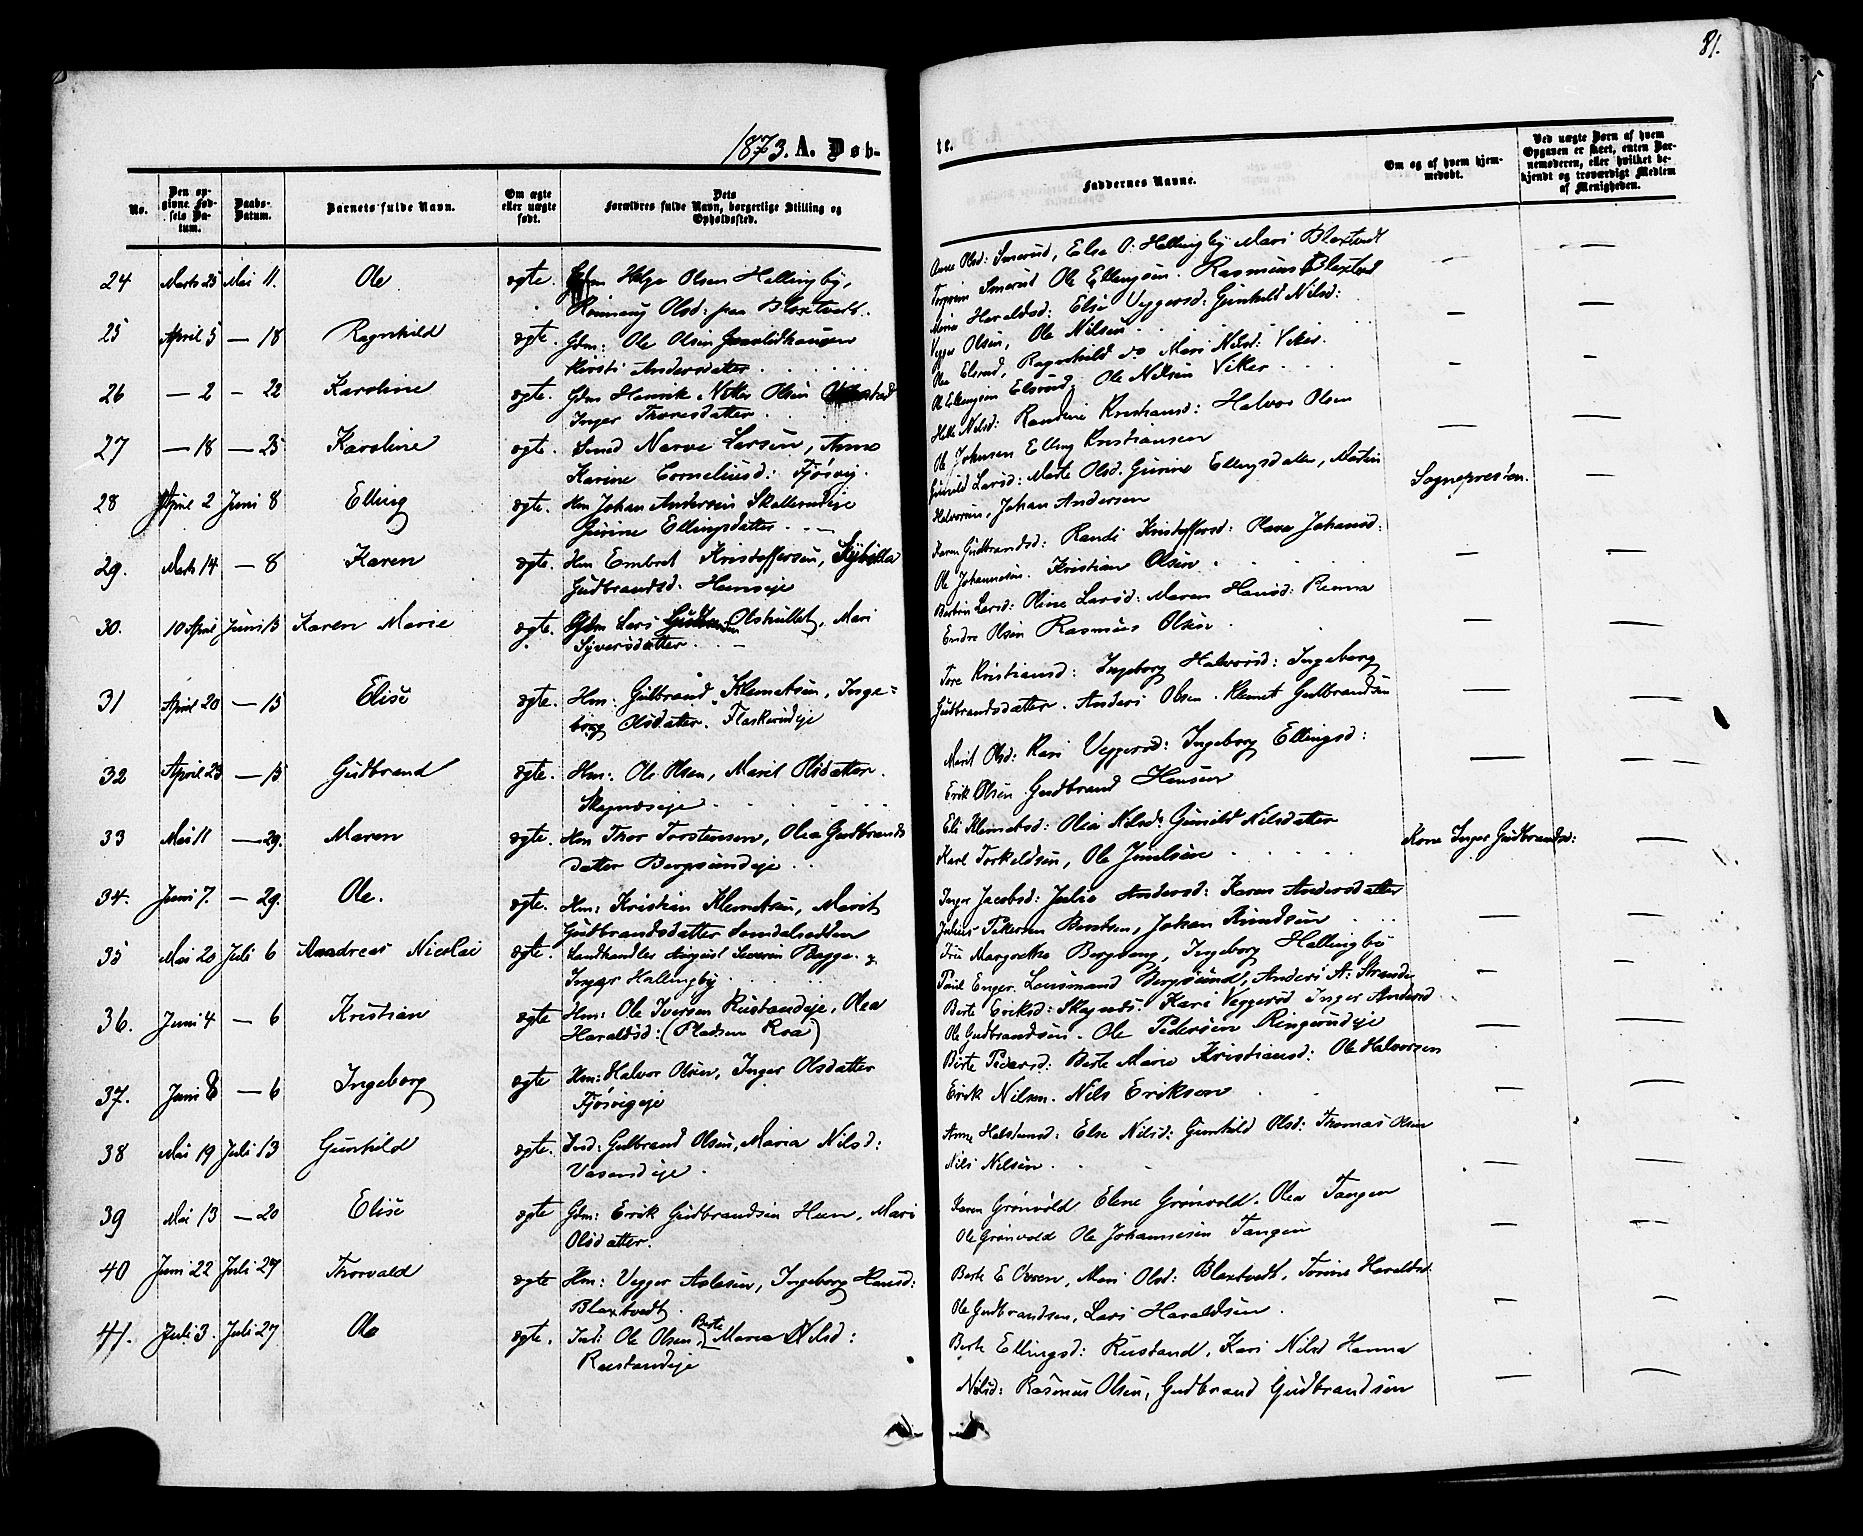 81.
1873. A. Døb-
te.
No.
Den op-
givne Fød-
sels Da-
tum.
Daabs-
Datum.
Barnets fulde Navn.
Om ægte
eller uægte
født.
Dets
Forældres fulde Navn, borgerlige Stilling og
Opholdssted.
Faddernes Navne.
Om og af hvem hjem-
medøbt.
Ved uægte Børn af hvem
Opgaven er skeet, enten Bar-
nemoderen, eller hvilket be-
kjendt og troværdigt Medlem
af Menigheden.
24 Marts 25 Mai 11. Ole ægte. Helge Olsen Hallingby,
Olsd: fra Blaxtvedt.
Anne Olsd: Smerud, Else O: Hallingby Mari Blaxtvedt
Smerud Ole Ellingsen. Rasmus Blaxtved —
25 April 5 — 18 Ragnhild ægte. Gdm: Ole Olsen
Kirsti Andersdatter
Maria Haraldsd: Else Veggersd: Gunhild Nilsd:
Vegger Olsen, Ole Nilsen — —
26 — 2 — 22 Karoline ægte. Gdm Henrik Olsen
Inger Thoresdatter
Elsrud, Ragnhild do Mari Nilsd: Viker.
Ole Ellingsen Elsrud, Ole Nilsen Viker — —
27 — 18 — 25 Karoline ægte. Smed Narve Larsen, Anne
Karine Corneliusd: Fjøsvig.
Helle Nilsd: Randine Kristiansd: Halvor Olsen
Ole Johnsen Elling Kristiansen — —
28 April 2 Juni 8 Elling ægte. Hm Johan Andersen Skallerudeje
Gurine Ellingsdatter
Gunild Larsd: Marte Olsd. Gurine Ellingsdatter, Martin
Halvorsen, Johan Andersen Sognepresten. —
29. Marts 14 — 8 Karen ægte. Hm Embret Kristoffersen, Sybilla
Gudbrandsd. Hunseje
Karen Gudbrandsd: Randi Kristoffersd: Olava Johansd:
Ole Johannesen. Kristian Olsen — —
30. 10 April Juni 15 Karen Marie ægte. Gdm Lars Olshullet, Mari
Syversdatter
Larsd: Oline Larsd: Maren Hansd: Renna
Endre Olsen Rasmus Olsen — —
31 April 20 — 15 Elise ægte. Hm: Gulbrand Klemetsen, Inge-
borg Olsdatter. Flaskerudeje
Tore Kristiansd: Ingeborg Halvorsd: Ingeborg
Gudbrandsdatter. Anders Olsen. Klemet Gulbrandsen — —
32 April 23 — 15 Gudbrand ægte. Hm: Ole Olsen, Marit Olsdatter.
Skagnæseje
Marit Olsd: Kari Veggersd: Ingeborg Ellingsd:
Erik Olsen Gudbrand Hansen — —
33 Mai 11 — 29. Maren ægte. Hm Thor Torstensen, Olea Gudbrands
datter Bergsundeje
Eli Klemetsd: Olea Nilsd: Gunild Nilsdatter
Karl Torkeldsen, Ole Juulsen Kone Inger Gudbrandsd: —
34. Juni 7. — 29. Ole. ægte. Hm: Kristian Klemetsen, Marit
Gudbrandsdatter Semdalsødden
Inger Jacobsd: Julie Andersd: Karen Andersdatter
Julius Bentsen, Johan Knudsen — —
35 Mai 20 Juli 6 Andreas Nicolai ægte. Landhandler August Severin Bagge &
Inger Hallingby
Margrethe Bergvang, Ingeborg Hallingby
Paul Enger. Lensmand Bergsund, Anders A: Strande — —
36. Juni 4 — 6 Kristian ægte Hm: Ole Iversen Rustandeje, Olea
Haraldsd: (Pladsen Roa)
Berte Eriksd: Kari Veggersd Inger Andersd
Ole Gudbrandsen. Ole Pedersen Ringerudeje — —
37. Juni 8 — 6 Ingeborg ægte Hm: Halvor Olsen, Inger Olsdatter
Fjøsvigeje
Berte Pedersd: Berte Marie Kristiansd: Ole Halvorsen
Erik Nilsen. Nils Eriksen — —
38 Mai 19 Juli 13 Gunhild ægte. Ind: Gulbrand Olsen, Maria Nilsd:
Vasendeje.
Anne Halstensd: Else Nilsd: Gunhild Olsd: Thomas Olsen
Nils Nilsen — —
39 Mai 13 — 20 Elise ægte Gdm: Erik Gudbrandsen Heen, Mari
Olsdatter.
Karen Grønvold Elene Grønvold. Olea Tangen
Ole Grønvold Ole Johannesen Tangen — —
40 Juni 22 Juli 27 Thorvald ægte Hm: Vegger Aslesen, Ingeborg Hansd:
Blaxtvedt.
Berte E Oppen, Mari Olsd: Blaxtvedt, Torine Haraldsd
Ole Gudbrandsen, Lars Haraldsen. — —
41. Juli 3. Juli 27 Ole ægte. Ind: Ole Olsen Berte Maria Nilsd:
Rustandeje
Berte Ellingsd: Rustand, Kari Nilsd Hanna
Nilsd: Rasmus Olsen, Gudbrand Gudbrandsen — —